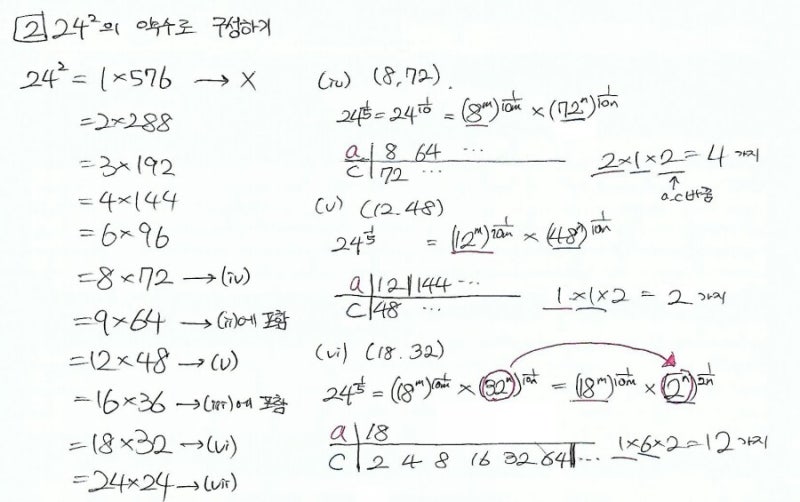 2 24²의 약수로 구성하기
24² = 1×576 → X
= 2×288
= 3×192
= 4×144
= 6×96
= 8×72 → (iv)
= 9×64 → (ii)에 포함
= 12×48 → (v)
= 16×36 → (iii)에 포함
= 18×32 → (vi)
= 24×24 → (vii)
(iv) (8,72).
24^(1/5) = 24^(1/10) = (8^m)^(1/10m) × (72^n)^(1/10n)
a | 8 64 ⋯
c | 72 ⋯
2×1×2 = 4 가지
↑
a.c 바꿈
(v) (12.48)
24^(1/5) = (12^m)^(1/10m) × (48^n)^(1/10n)
a | 12 | 144 ⋯
c | 48 ⋯
1×1×2 = 2 가지
(vi) (18.32)
24^(1/5) = (18^m)^(1/10m) × (32^n)^(1/10n) = (18^m)^(1/10m) × (2^n)^(1/2n)
a | 18
c | 2 4 8 16 32 64 | ⋯
1×6×2 = 12 가지